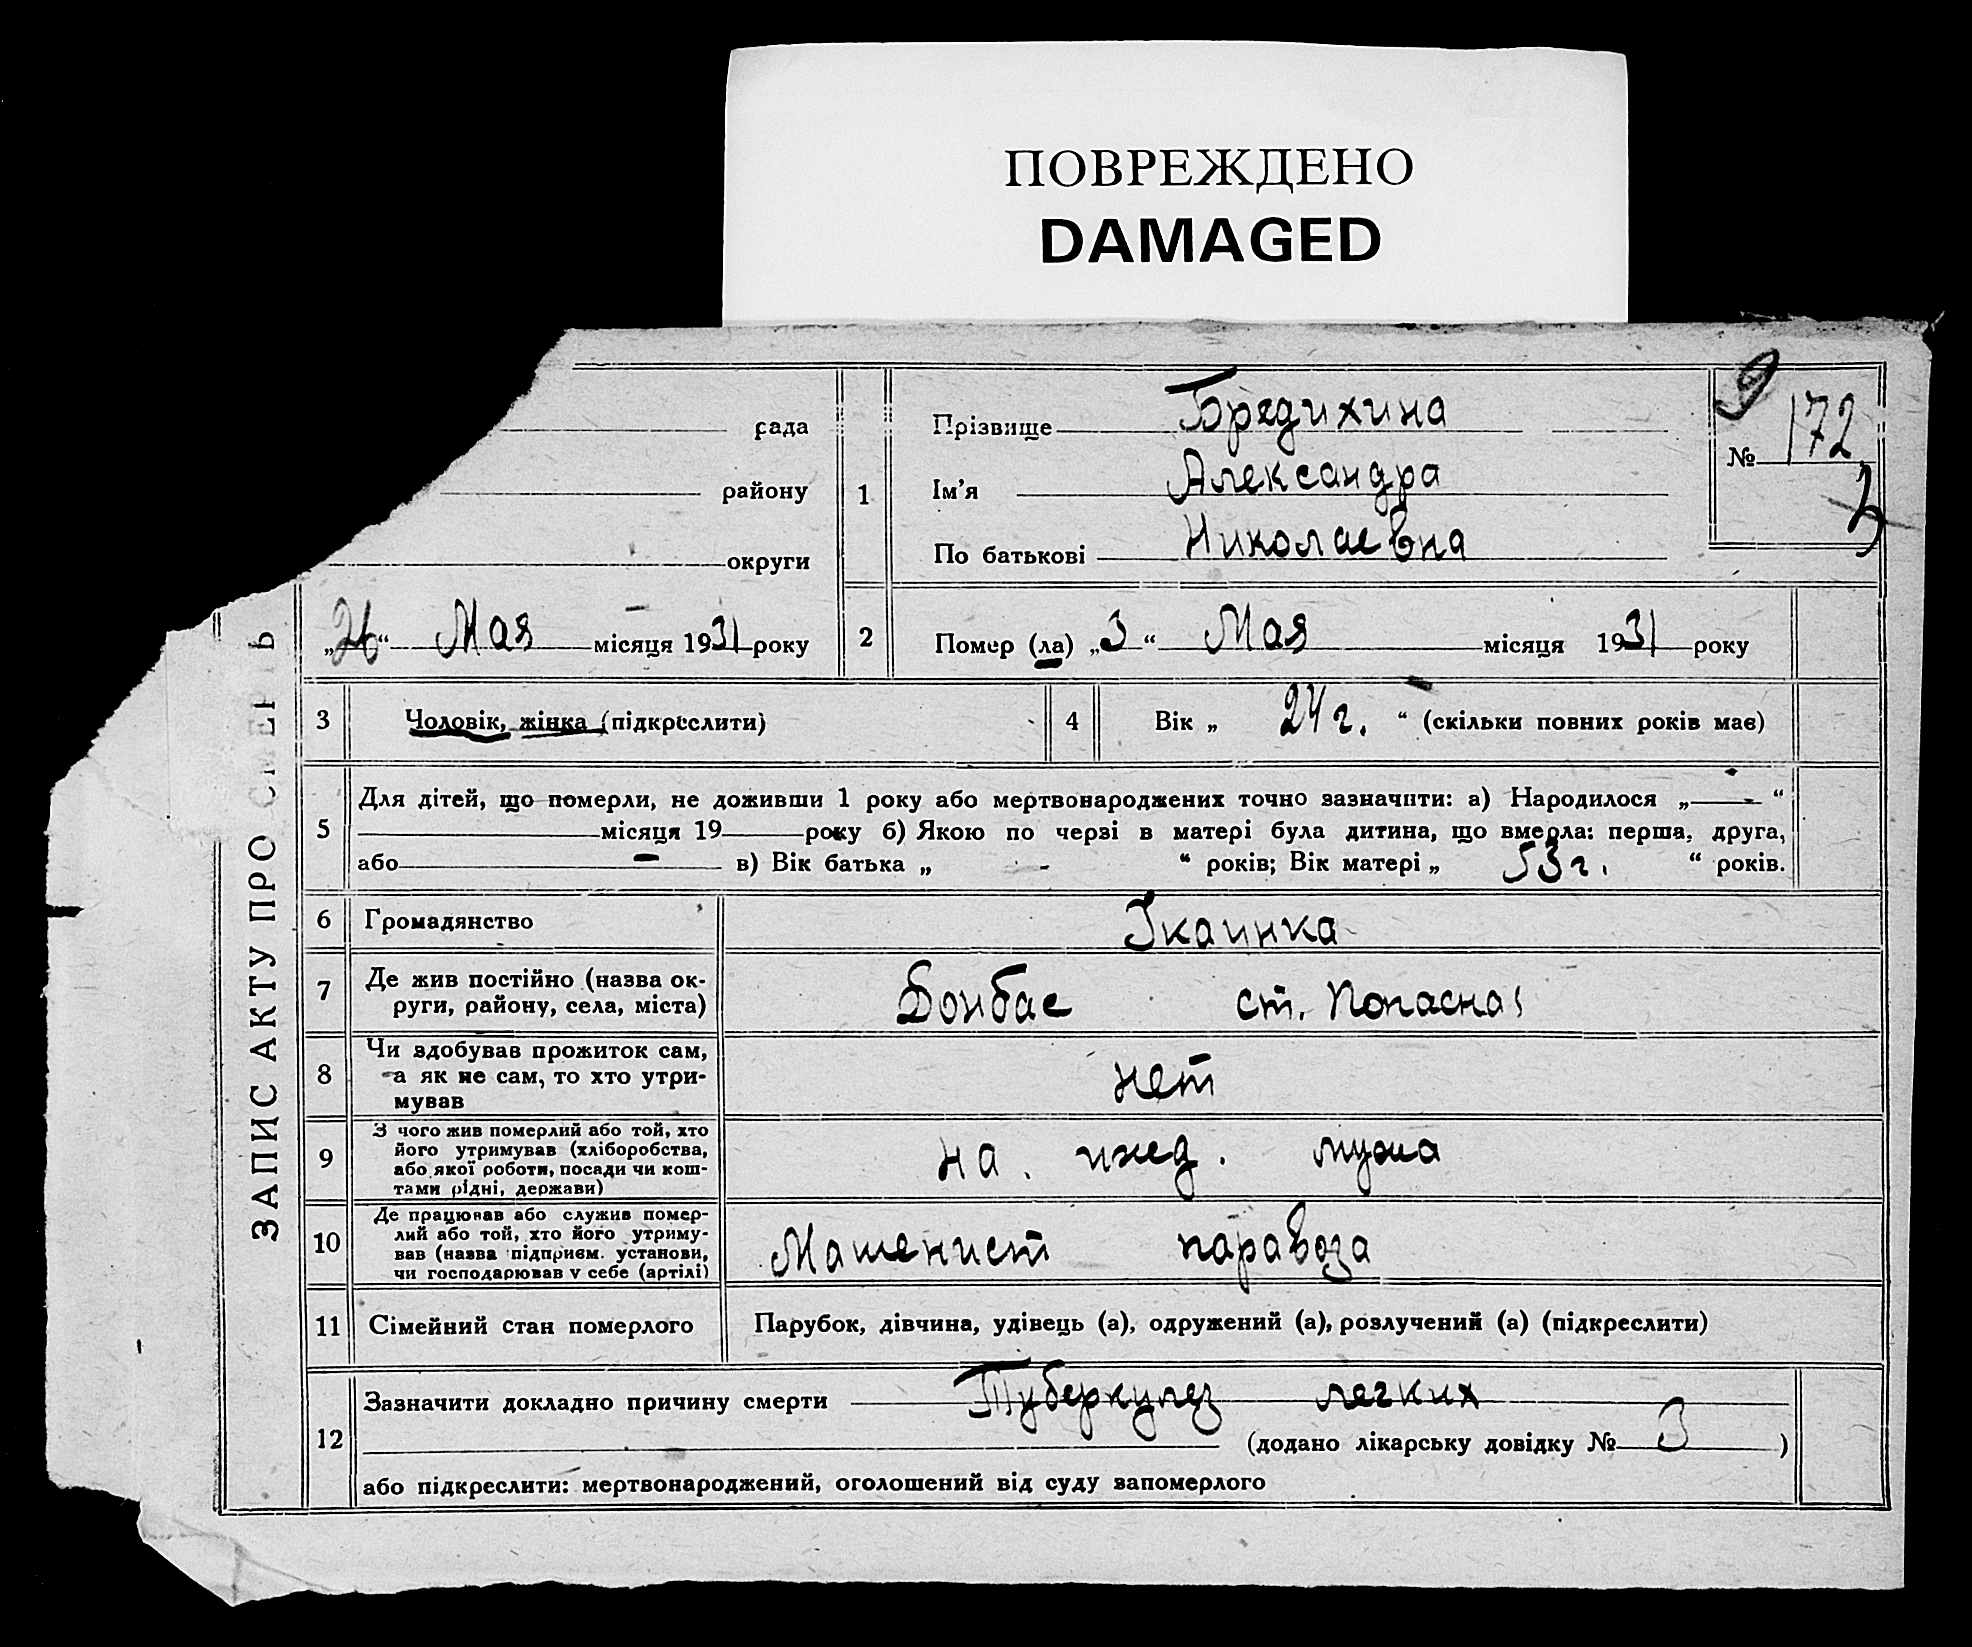 ПОВРЕЖДЕНО
DAMAGED
рада
району
округи
„26“ Мая місяця 1931 року
ЗАПИС АКТУ ПРО СМЕРТЬ
1
Прізвище Бредихина
Ім'я Александра
По батькові Николаевна
№ 172
2
Помер (ла) „3“ Мая місяця 1931 року
3
Чоловік, жінка (підкреслити)
4
Вік „ 24 г. “ (скільки повних років має)
5
Для дітей, що померли, не доживши 1 року або мертвонароджених точно зазначити: а) Народилося „—“
місяця 19 року б) Якою по черзі в матері була дитина, що вмерла: перша, друга,
або — в) Вік батька „ - “ років; Вік матері „ 53 г. “ років.
6
Громадянство
Укаинка
7
Де жив постійно (назва ок-
руги, району, села, міста)
Донбас ст. Попасная
8
Чи здобував прожиток сам,
а як не сам, то хто утри-
мував
нет
9
З чого жив померлий або той, хто
його утримував (хліборобства,
або якої роботи, посади чи кош-
тами рідні, держави)
на ижед. мужа
10
Де працював або служив помер-
лий або той, хто його утриму-
вав (назва підприєм. установи,
чи господарював у себе (артілі)
Машенист паравоза
11
Сімейний стан померлого
Парубок, дівчина, удівець (а), одружений (а), розлучений (а) (підкреслити)
12
Зазначити докладно причину смерти Туберкулез легких
(додано лікарську довідку № 3 )
або підкреслити: мертвонароджений, оголошений від суду запомерлого